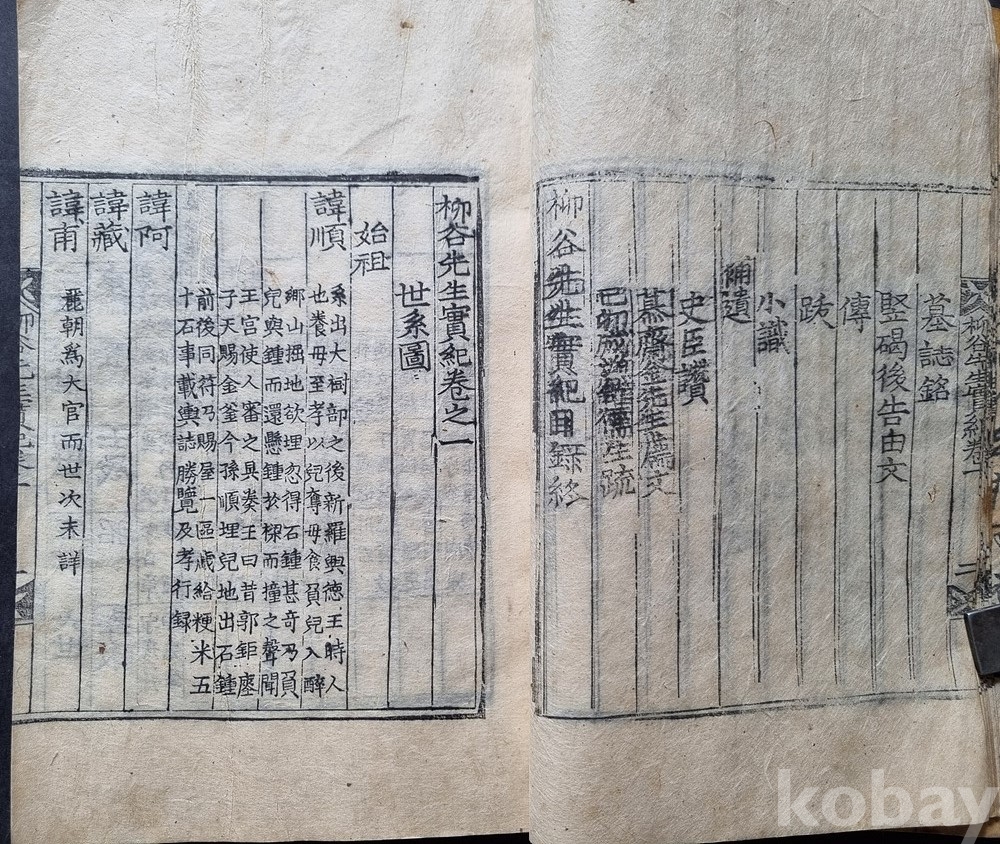 柳谷先生實紀卷一
二
墓誌銘
竪碣後告由文
傳
跋
小識
補遺
史臣讚
慕齋金先生薦文
儒生疏
柳谷先生實紀目錄終
柳谷先生實紀卷之一
世系圖
始祖
諱順
系出大樹部之後新羅興德王時人
也養母至孝以兒奪母食負兒入醉
鄉山掘地欲埋忽得石鍾甚奇乃負
兒與鍾而還懸鍾於樑而撞之聲聞
王宮使人審之具奏王曰昔郭鉅瘞
子天賜金釜今孫順埋兒地出石鍾
前後同符乃賜屋一區歲給粳米五
十石事載輿誌勝覽及孝行錄
諱阿
諱藏
諱甫 麗朝爲大官而世次未詳
kobay